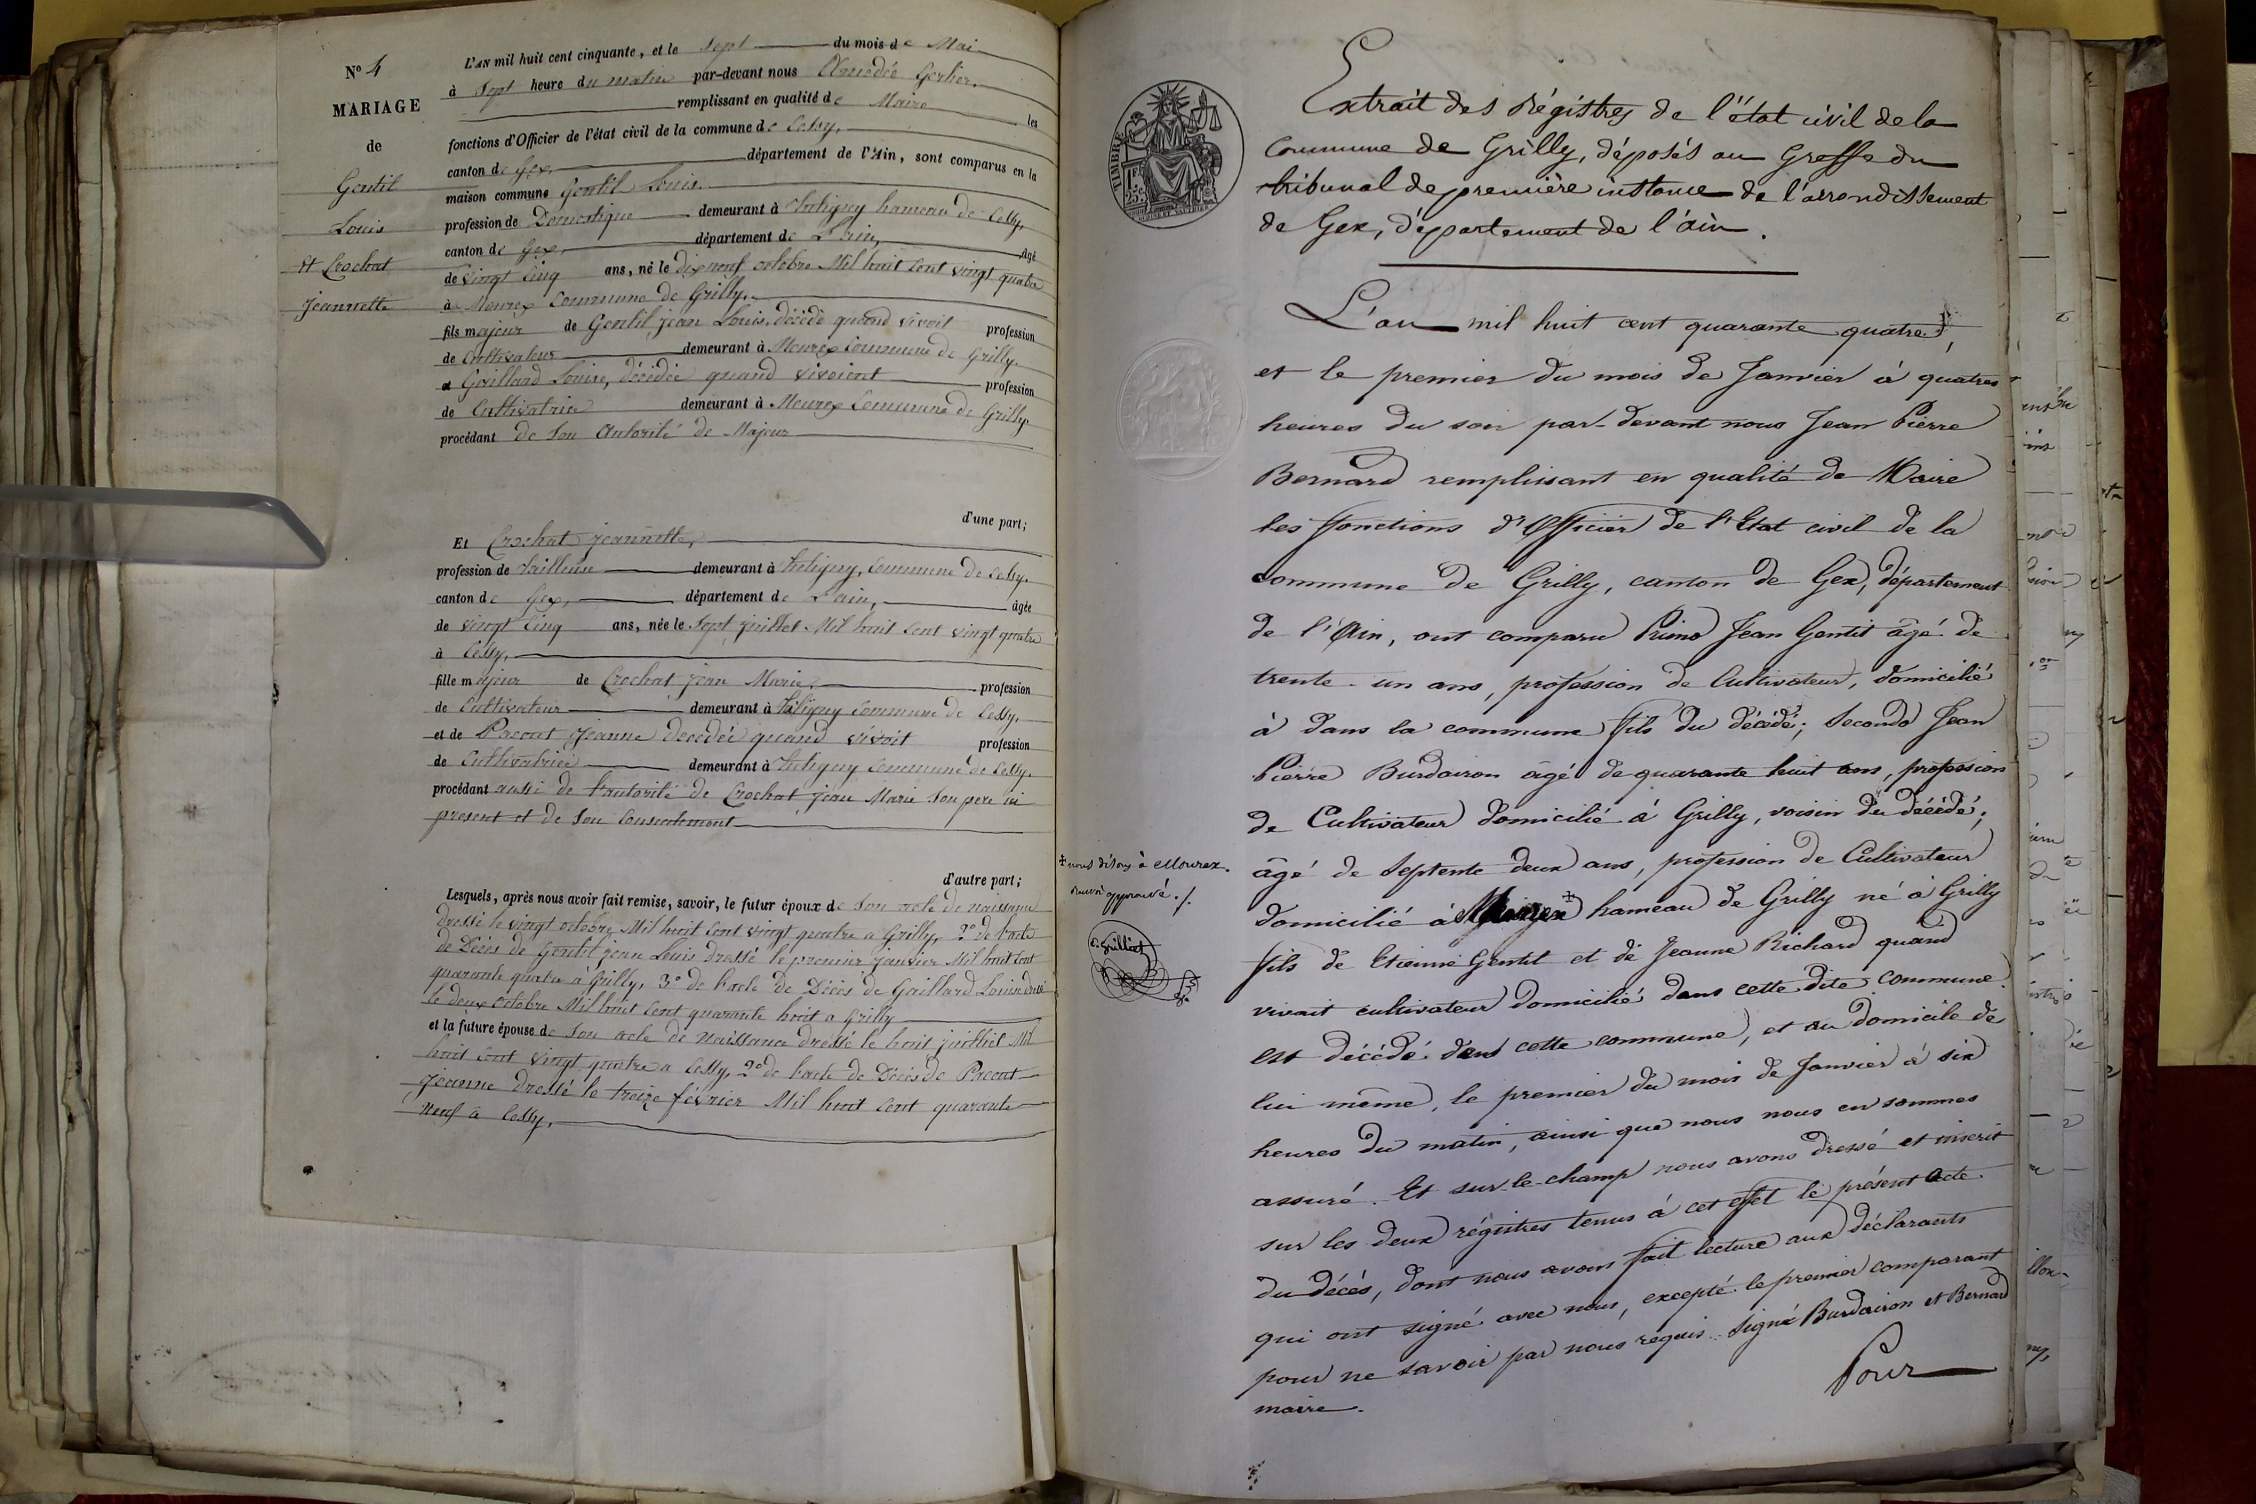 N° 4
MARIAGE
de
Gentil
Louis
et Crochat
Jeannette
L'AN mil huit cent cinquante, et le Sept du mois de Mai
à Sept heure du matin par-devant nous Amédée Gerlier.
remplissant en qualité de Maire les
fonctions d'Officier de l'état civil de la commune de Cessy,
canton de Gex, département de l'Ain, sont comparus en la
maison commune Gentil Louis.
profession de Domestique demeurant à hameau de Cessy,
canton de Gex, département de L'ain, âgé
de vingt Cinq ans, né le dix neuf octobre Mil huit Cent vingt quatre
à Mourex Commune de Grilly.
fils majeur de Gentil jean Louis, décédé quand vivoit profession
de Cultivateur demeurant à Mourex Commune de Grilly.
et Gaillard Louise, décédée quand vivoient profession
de Cultivatrice demeurant à Mourex Commune de Grilly
procédant de Son Autorité de Majeur
d'une part;
Et Crochat jeannette,
profession de tailleuse demeurant à commune de Cessy.
canton de Gex, département de L'ain, âgée
de vingt Cinq ans, née le Sept juillet Mil huit Cent vingt quatre
à Cessy,
fille majeur de Crochat jean Marie, profession
de Cultivateur demeurant à commune de Cessy,
et de Jeanne decedée quand vivoit profession
de Cultivatrice demeurant à Commune de Cessy.
procédant aussi de l'autorité de Crochat jean Marie Son pere ici
present et de Son Consentement
d'autre part;
Lesquels, après nous avoir fait remise, savoir, le futur époux de Son acte de naissance
dressé le vingt octobre Mil huit Cent vingt quatre a Grilly, 2° de l'acte
de Décès de Gentil jean Louis dressé le premier janvier Mil huit Cent
quarante quatre à Grilly, 3° de l'acte de Décès de Gaillard Louise dressé
le deux octobre Mil huit Cent quarante huit a Grilly
et la future épouse de Son acte de Naissance dressé le huit juillet Mil
huit Cent vingt quatre a Cessy, 2° de l'acte de Décès de
Jeanne dressé le treize février Mil huit Cent quarante
Neuf à Cessy,
TIMBRE
Extrait des Régistres de l'état civil de la
Commune de Grilly, déposés au Greffe du
tribunal de première instance de l'arrondissement
de Gex, département de l'ain.
L'an mil huit cent quarante quatre,
et le premier du mois de Janvier à quatres
heures du soir par-devant nous Jean Pierre
Bernard remplissant en qualité de Maire
les fonctions d'Officier de l'Etat civil de la
commune de Grilly, canton de Gex, département
de l'Ain, ont comparu Primo Jean Gentil âgé de
trente-un ans, profession de Cultivateur, domicilié
à dans la commune fils du décédé; Secondo Jean
Pierre Burdairon âgé de quarante huit ans, profession
de Cultivateur domicilié à Grilly, voisin du décédé;
âgé de Septente deux ans, profession de Cultivateur
domicilié à hameau de Grilly né à Grilly
fils de Etienne Gentil et de Jeanne Richard quand
vivait cultivateur domicilié dans cette dite commune.
est décédé dans cette commune, et au domicile de
lui même, le premier du mois de Janvier à six
heures du matin, ainsi que nous nous en sommes
assuré. Et sur-le-champ nous avons dressé et inscrit
sur les deux régistres tenus à cet effet le présent Acte
du décès, dont nous avons fait lecture aux déclarants
qui ont signé avec nous, excepté le premier comparant
pour ne savoir par nous requis. Signé Burdairon et Bernard
maire.
Pour
‡ nous disons à Mourex.
approuvé ./.
Grilliet